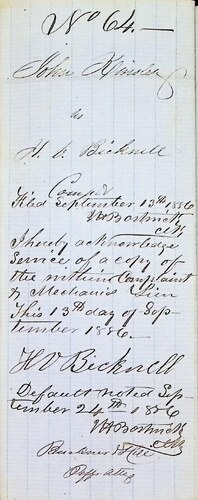 No 64.—
John Hinsley
vs
H. V. Bicknell
Compt
Filed September 13th 1886
W H Bostwick
clk
I hereby acknowledge
service of a copy of
the within Complaint
& Mechanics Lien
This 13th day of Sep-
tember 1886.
H V Bicknell
Default noted Sep-
tember 24th 1886
W H Bostwick
clk
Plffs Atty